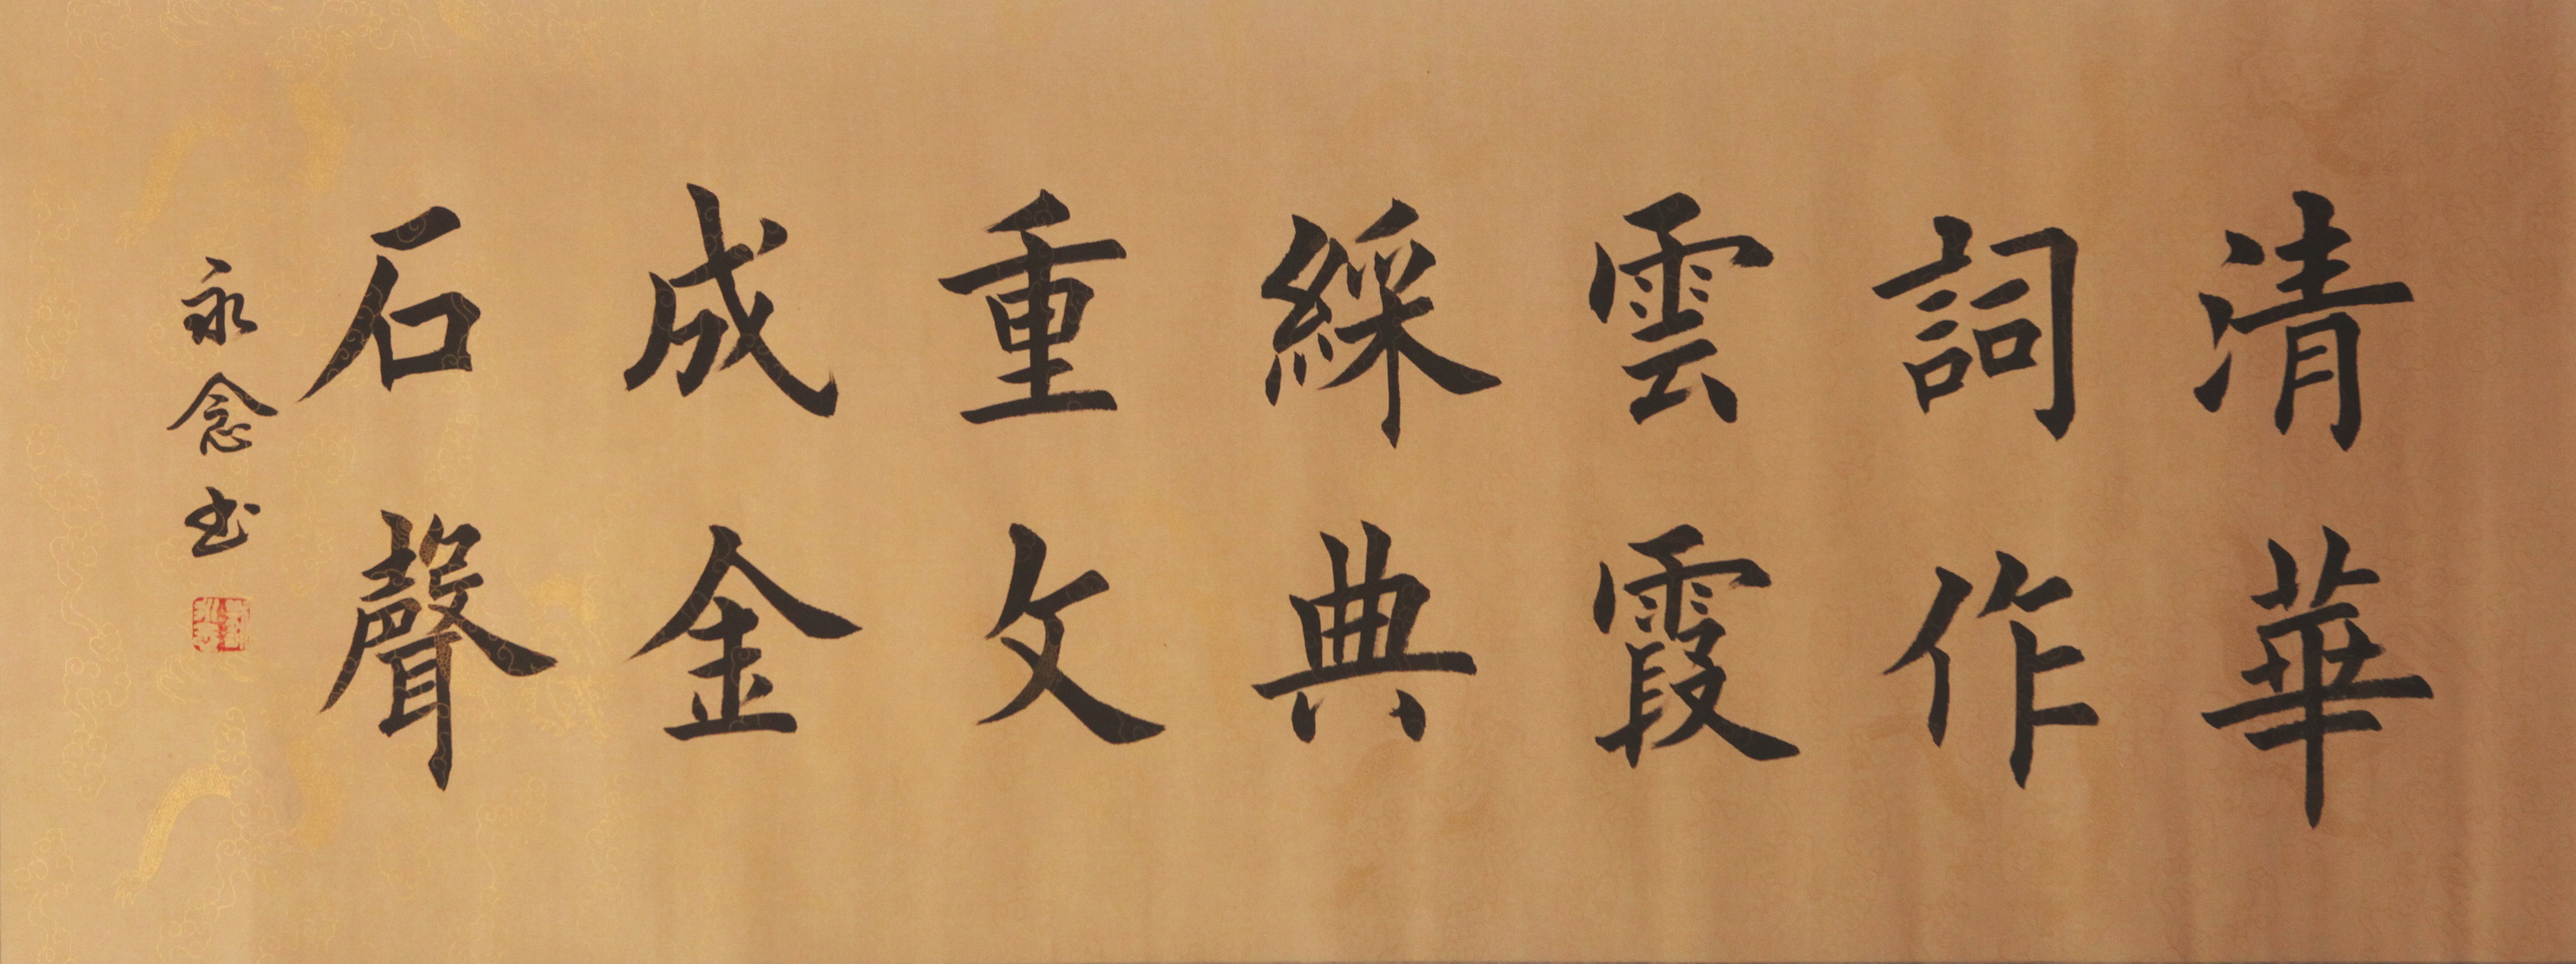 清華
詞作
雲霞
綵典
重文
成金
石聲
永念书